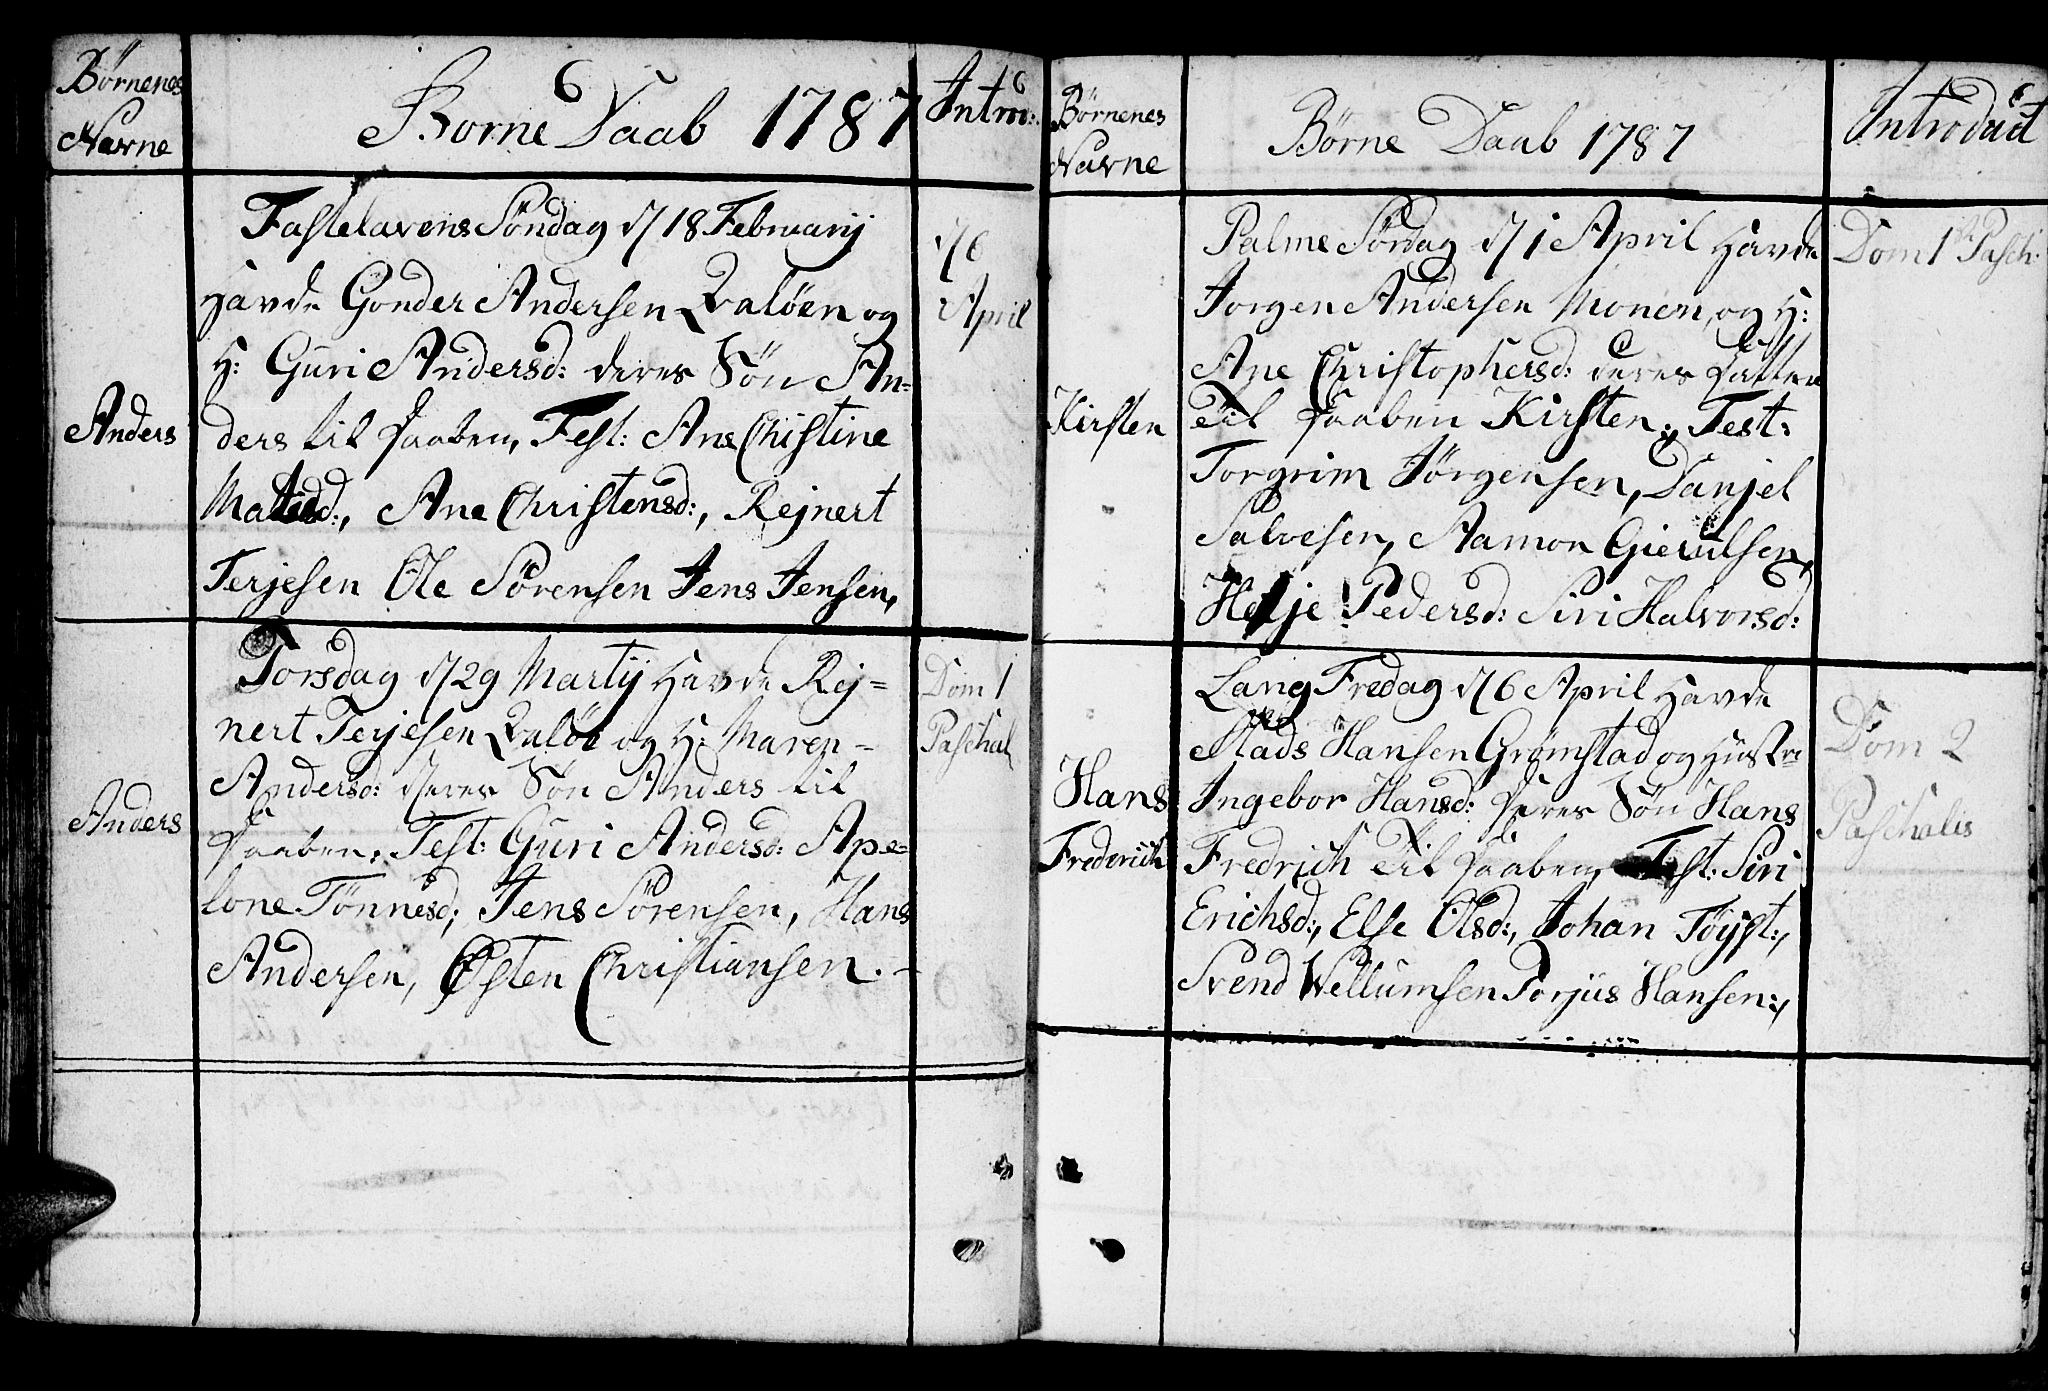 Børnenes
Navne
Børne Daab 1787
Intro:
Anders
Fastelavens Søndag d/18 Februarij
havde Gonder Andersen Qvaløen og
H: Guri Andersd: deres Søn An-
ders til Daaben, Test: Ane Christine
Ane Christensd:, Rejnert
Terjesen Ole Sørensen Jens Jensen,
d/6
April
Anders
Torsdag d/29 Martij havde Rej-
nert Terjesen Qvaløe og H: Maren
Andersd: deres Søn Anders til
Daaben, Test: Guri Andersd: Ape-
lone Tønnesd; Jens Sørensen, Hans
Andersen, Østen Christiansen.
Dom 1
Paschal
Børnenes
Navne
Børne Daab 1787
Introduct
Kirsten
Palme Søndag d/1 April havde
Jorgen Andersen Monen, og H:
Ane Christophersd: deres Datter
Til Daaben Kirsten, Test:
Torgrim Jørgensen, Danjel
Salvesen, Aamon Gierulsen,
Helje Pedersd: Siri Halvorsd:
Dom 1 Pasch.
Hans
Frederich
Lang Fredag d/6 April havde
Mads Hansen Grømstad og Hustr:
Ingebor Hansd: Deres Søn Hans
Fredrich Til Daaben, Test: Siri
Erichsd:, Else Olsd:, Johan Töyst:,
Svend Wellumsen Torjus Hansen:,
Dom 2
Paschalis